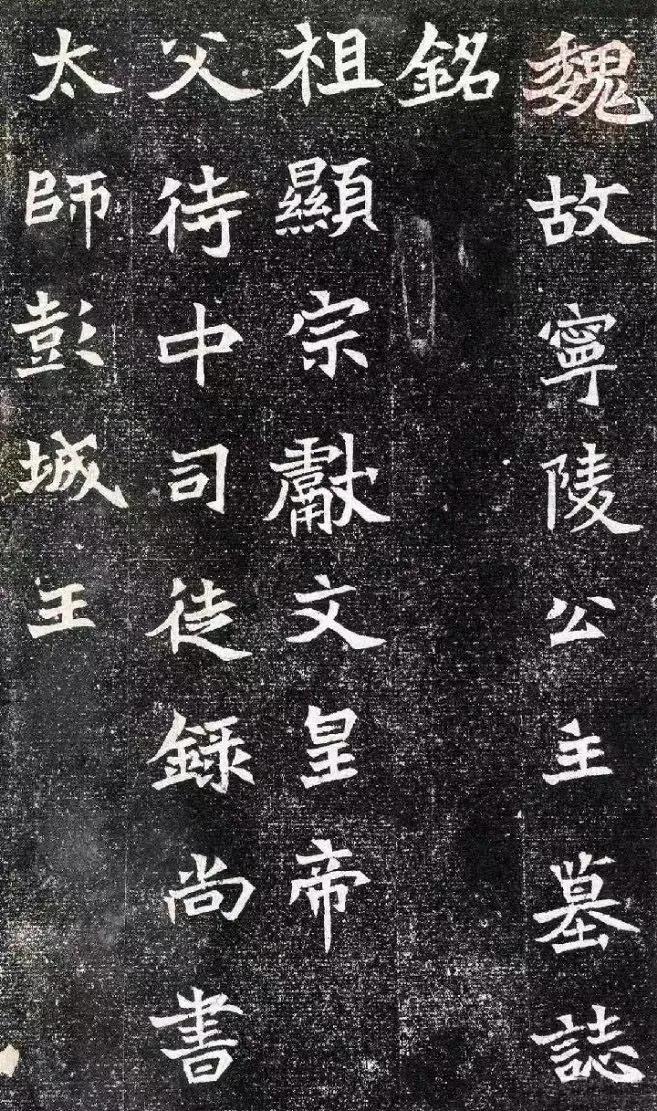 魏故寧陵公主墓誌
銘
祖顯宗獻文皇帝
父侍中司徒錄尚書
太師彭城王